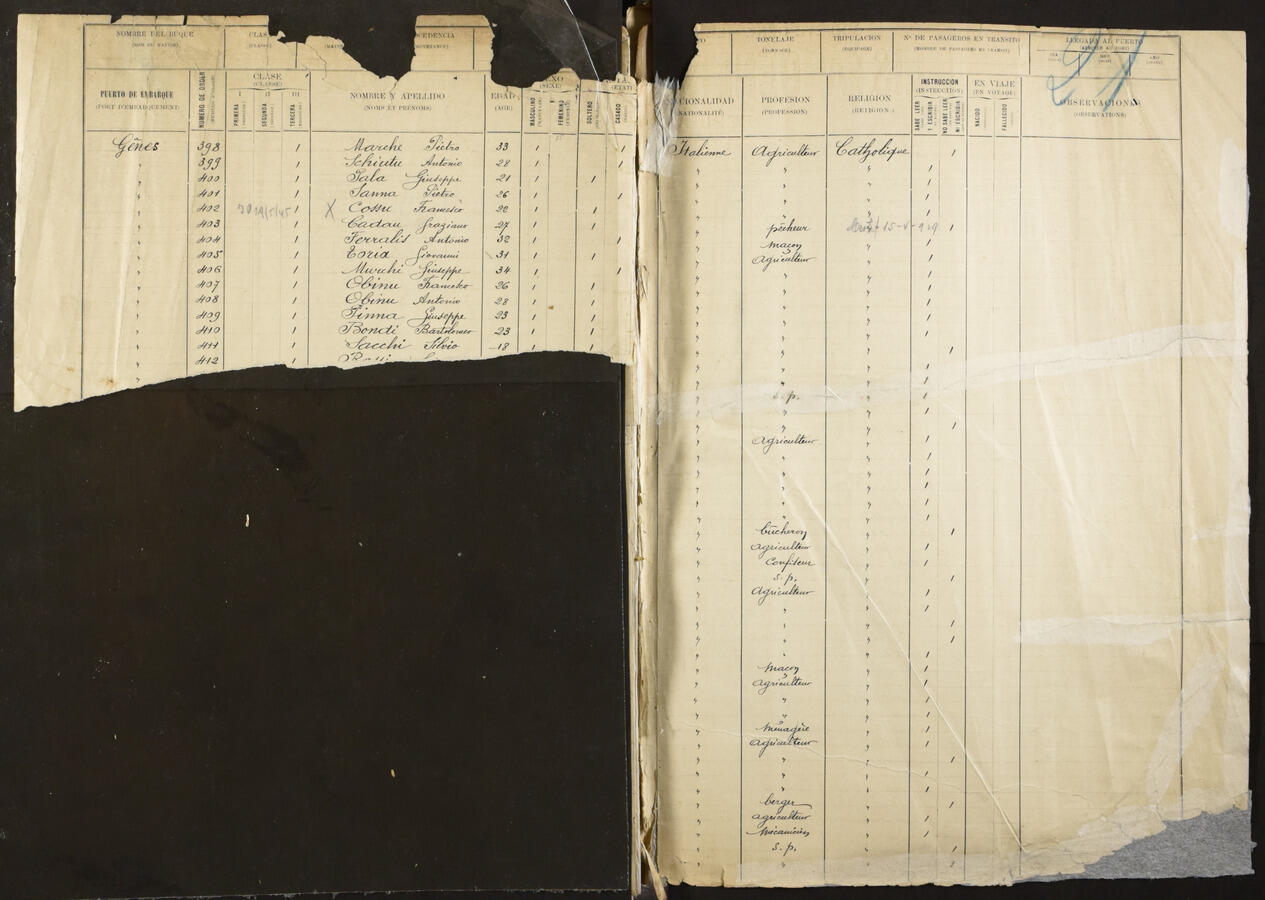 NOMBRE DEL BUQUE
(NOM DU NAVIRE)
CLAS
(CLASSE)
PUERTO DE EMBARQUE
(PORT D'EMBARQUEMENT)
NUMERO DE ORDEN
CLASE
(CLASSE)
I II III
PRIMERA
SEGUNDA
TERCERA
NOMBRE Y APELLIDO
(NOMS ET PRÉNOMS)
EDAD
(AGE)
(SEXE)
MASCULINO
FEMENINO
(ETAT)
SOLTERO
CASADO
Gênes 398 / Marche Pietro 33 / /
" 399 / Schintu Antonio 28 / /
" 400 / Sala Giuseppe 21 / /
" 401 / Sanna Pietro 26 / /
" 402 / X Cossu Francesco 22 / /
" 403 / Cadau Graziano 27 / /
" 404 / Ferralis Antonio 32 / /
" 405 / Toria Giovanni 31 / /
" 406 / Murchi Giuseppe 34 / /
" 407 / Obinu Francesco 26 / /
" 408 / Obinu Antonio 28 / /
" 409 / Pinna Giuseppe 23 / /
" 410 / Bondi Bartolomeo 23 / /
" 411 / Sacchi Silvio 18 / /
" 412
TONELAJE
(TONNAGE)
TRIPULACION
(EQUIPAGE)
Nº DE PASAGEROS EN TRANSITO
(NOMBRE DE PASAGERS EN TRANSIT)
LLEGADA AL PUERTO
21
CIONALIDAD
NATIONALITÉ)
PROFESION
(PROFESSION)
RELIGION
(RELIGION)
INSTRUCCION
(INSTRUCTION)
SABE LEER Y ESCRIBIR
NO SABE LEER NI ESCRIBIR
EN VIAJE
(EN VOYAGE)
NACIDO
FALLECIDO
OBSERVACIONES
(OBSERVATIONS)
Italienne Agriculteur Catholique /
" " " /
" " " /
" " " /
" " " /
" pêcheur /
" maçon " /
" Agriculteur " /
" " " /
" " " /
" " " /
" " " /
" " " /
" " " /
" " " /
" " " /
" s. p. " /
" " " /
" " " /
" Agriculteur " /
" " " /
" " " /
" " " /
" " " /
" " " /
" bûcheron " /
" agriculteur " /
" Confiseur " /
" s. p. " /
" Agriculteur " /
" " " /
" " " /
" " " /
" " " /
" Maçon " /
" agriculteur " /
" " " /
" " " /
" Ménagère " /
" agriculteur " /
" " " /
" " " /
" " " /
" berger " /
" agriculteur " /
" Mécanicien " /
" s. p. " /
" " " /